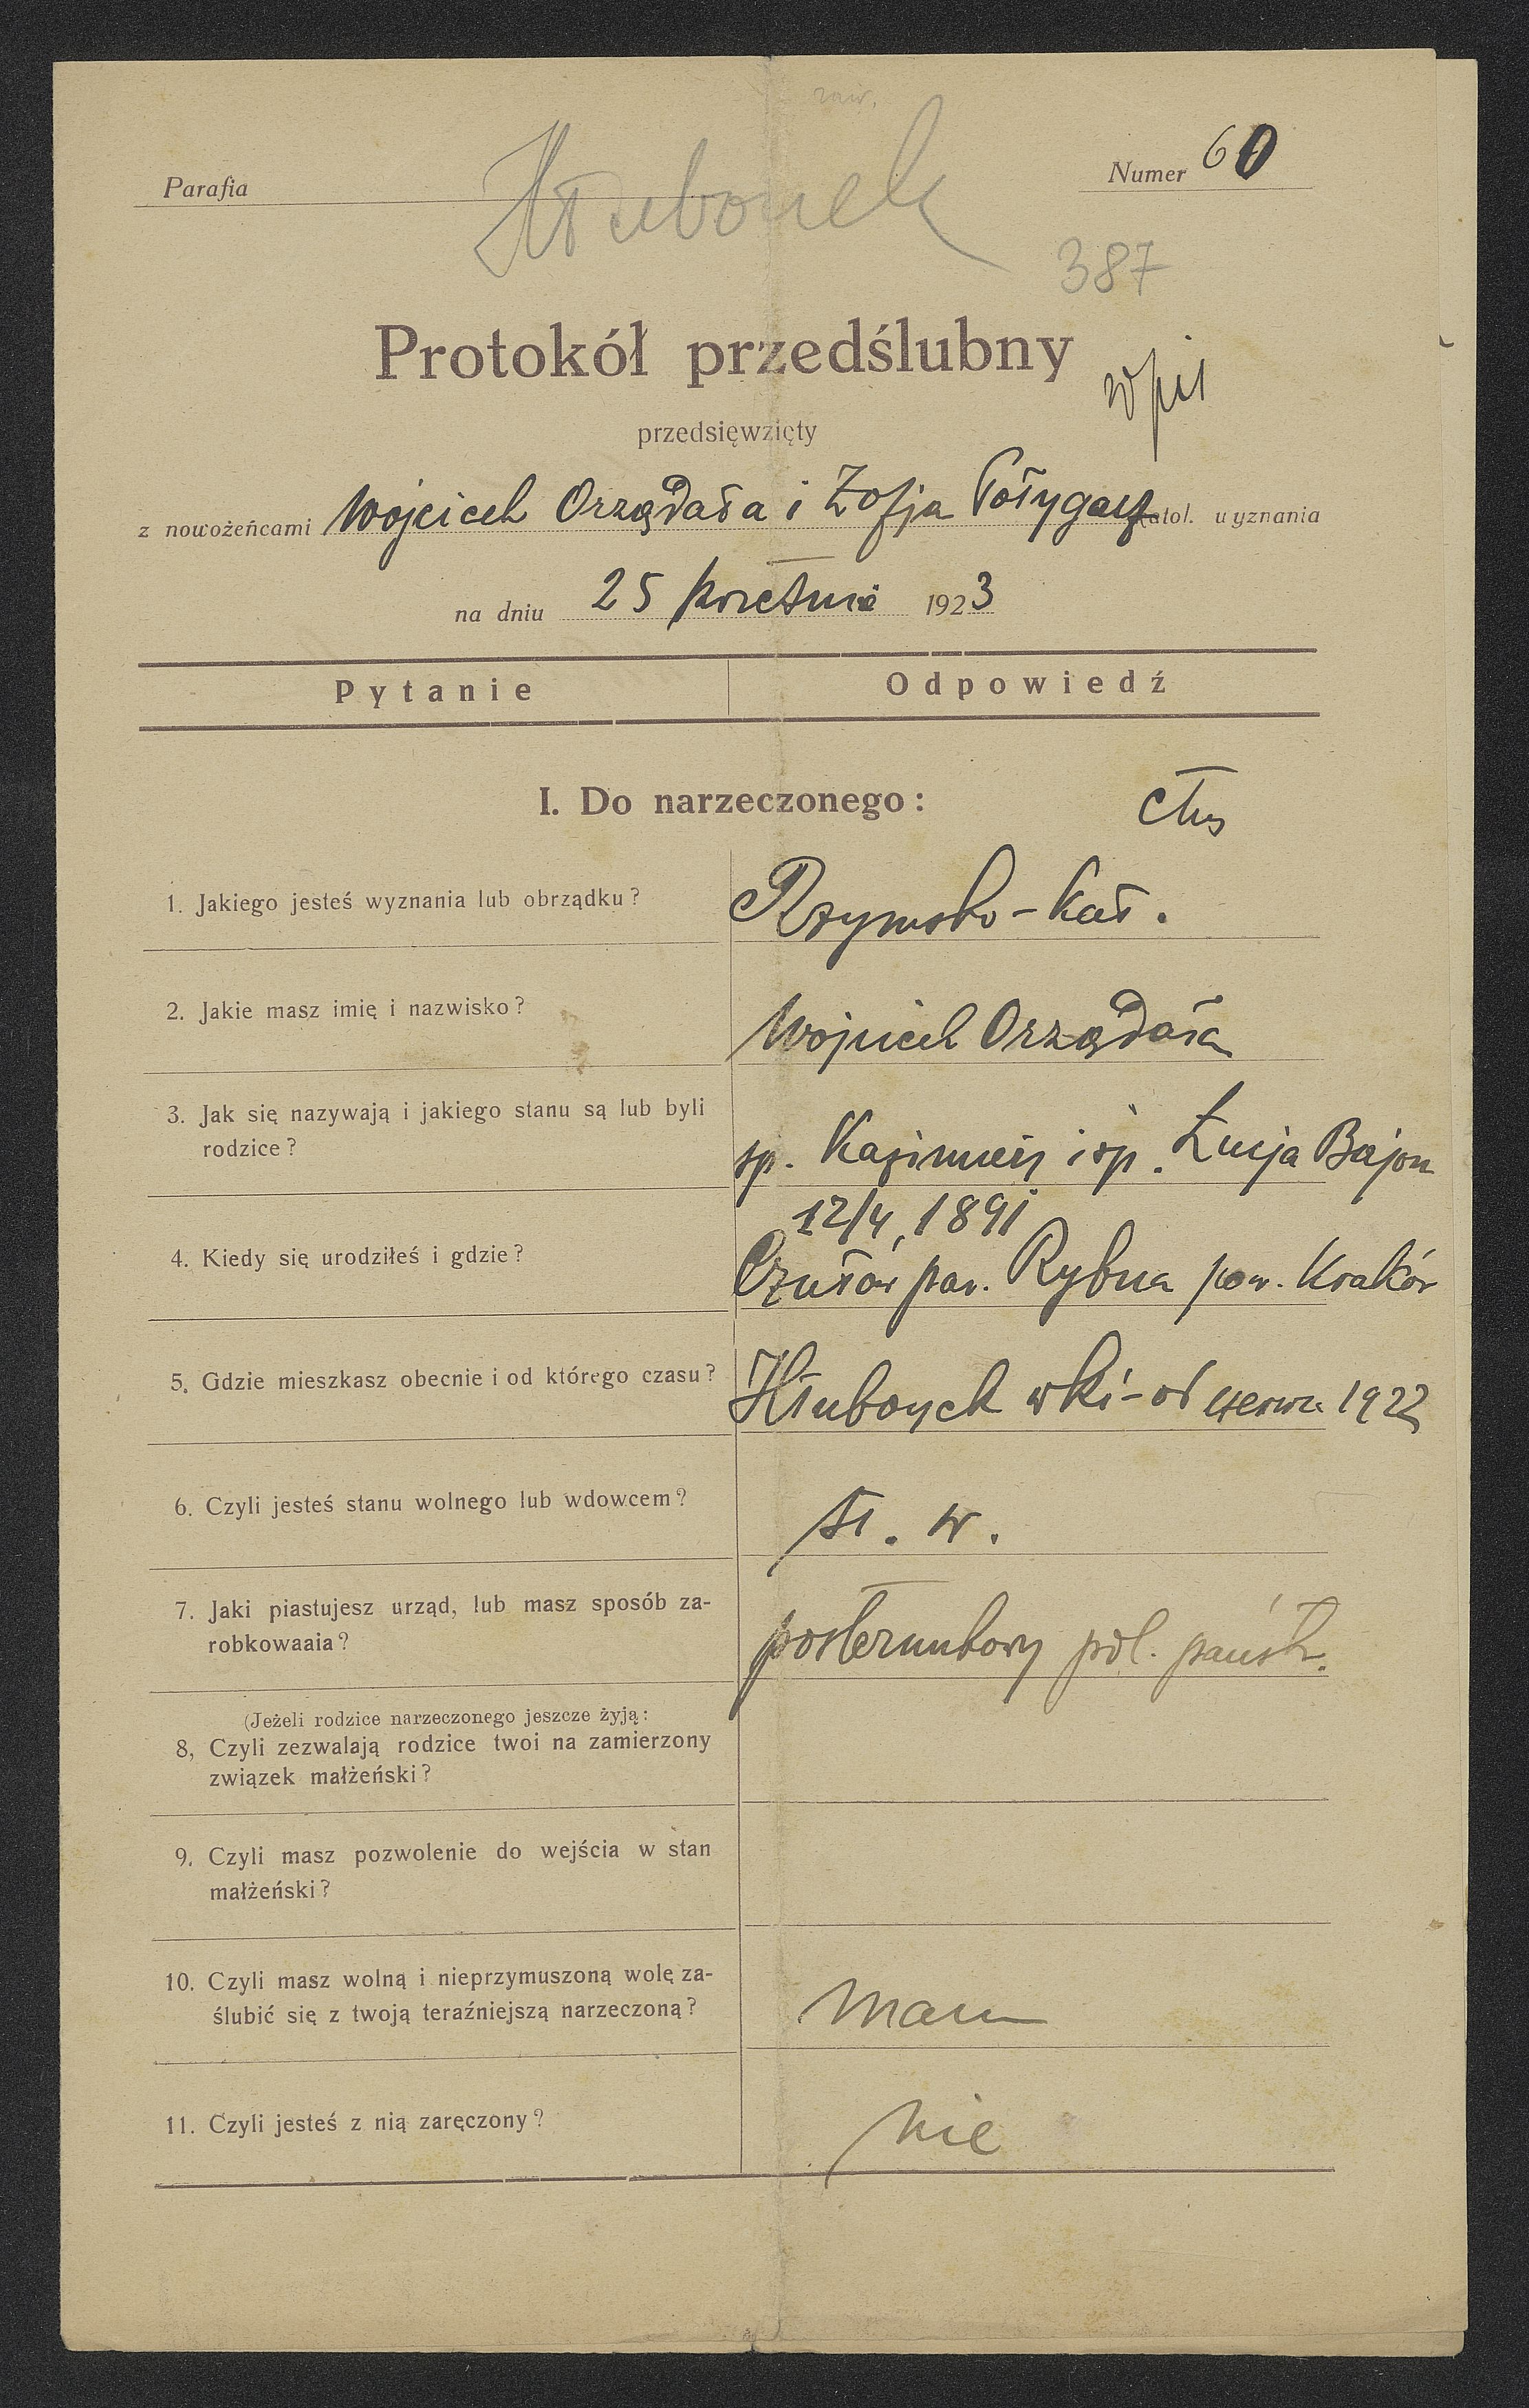 zaw.
Parafia
Hłubonek
Numer 60
387
Protokół przedślubny
wpis
przedsięwzięty
z nowożeńcami Wojciech Orządała i Zofja katol. wyznania
na dniu 25 kwietnia 1923
Pytanie Odpowiedź
I. Do narzeczonego:
1. Jakiego jesteś wyznania lub obrządku? Rzymsko-kat.
2. Jakie masz imię i nazwisko? Wojciech Orządała
3. Jak się nazywają i jakiego stanu są lub byli
rodzice? śp. Kazimierz i śp. Łucja Bajon
12/4, 1891
4. Kiedy się urodziłeś i gdzie? Czułów par. Rybna pow. Kraków
5. Gdzie mieszkasz obecnie i od którego czasu? Hłuboczek wki - od czerwca 1922
6. Czyli jesteś stanu wolnego lub wdowcem? st. w.
7. Jaki piastujesz urząd, lub masz sposób za-
robkowaaia? posterunkowy pol. państw.
(Jeżeli rodzice narzeczonego jeszcze żyją:
8, Czyli zezwalają rodzice twoi na zamierzony
związek małżeński?
9. Czyli masz pozwolenie do wejścia w stan
małżeński?
10. Czyli masz wolną i nieprzymuszoną wolę za-
ślubić się z twoją teraźniejszą narzeczoną? mam
11. Czyli jesteś z nią zaręczony? nie